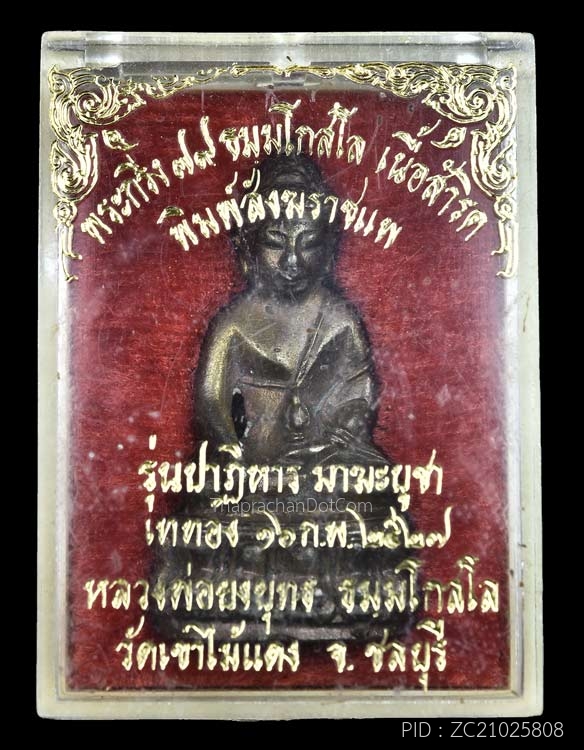 พระกริ่ง ๗๙ ธมฺมโกสโล เนื้อสำริด
พิมพ์สังฆราชแพ
รุ่นปาฏิหาร มาฆะบูชา
ThaprachanDotCom
เททอง ๑๖ ก.พ. ๒๕๒๗
หลวงพ่อยงยุทธ ธมฺมโกสโล
วัดเขาไม้แดง จ. ชลบุรี
PID : ZC21025808